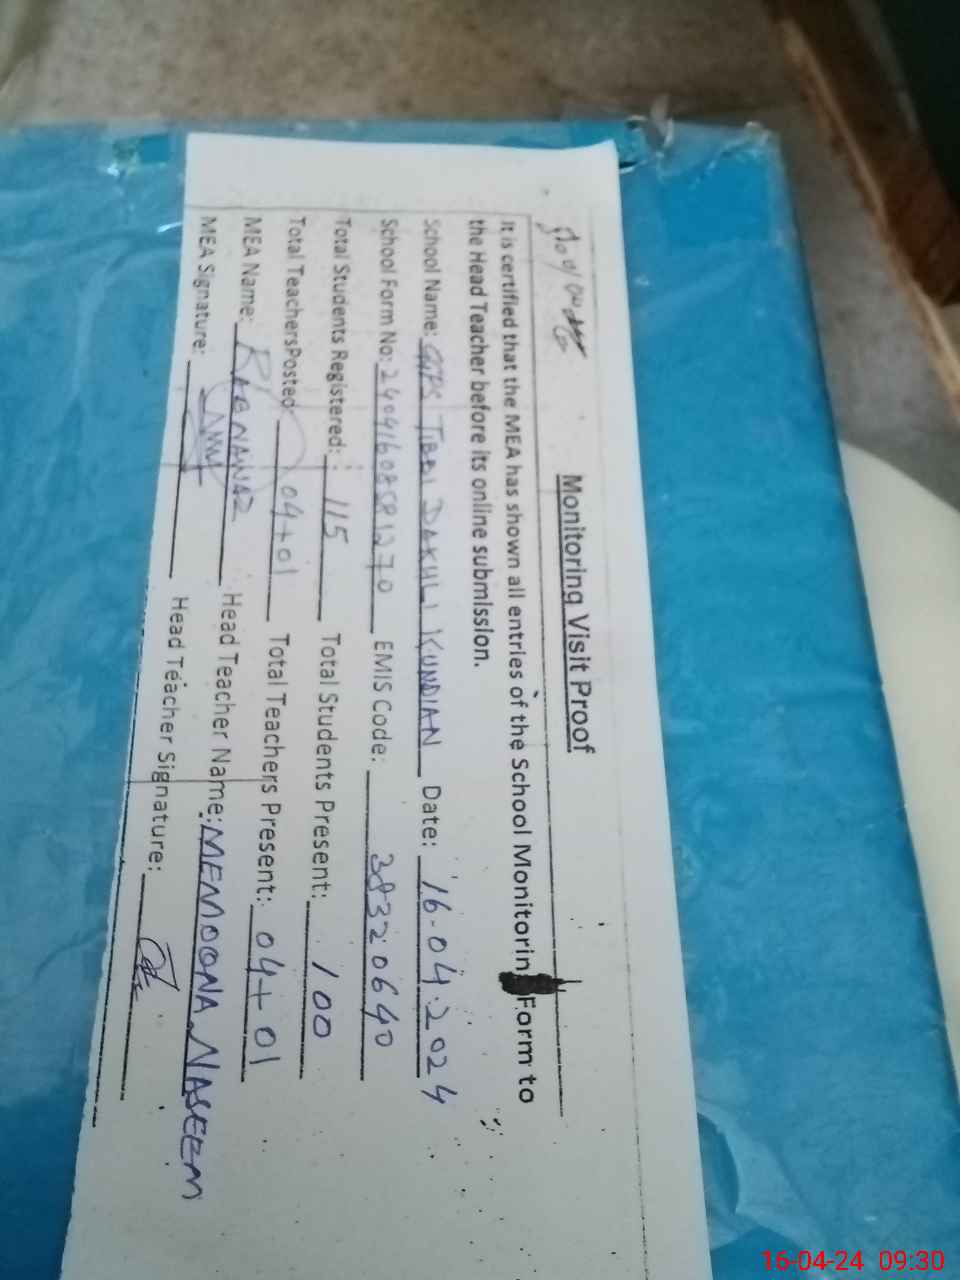 Monitoring Visit Proof
It is certified that the MEA has shown all entries of the School Monitorin Form to
the Head Teacher before its online submission.
School Name: GGPS TIBBI DAKHLI KUNDIAN Date: 16-04-2024
School Form No: EMIS Code: 38320640
Total Students Registered: 115 Total Students Present: 100
Total TeachersPosted: 04+01 Total Teachers Present: 04+01
MEA Name: RAB NAWAZ Head Teacher Name: MEMOONA NASEEM
MEA Signature: Head Teacher Signature:
16-04-24 09:30